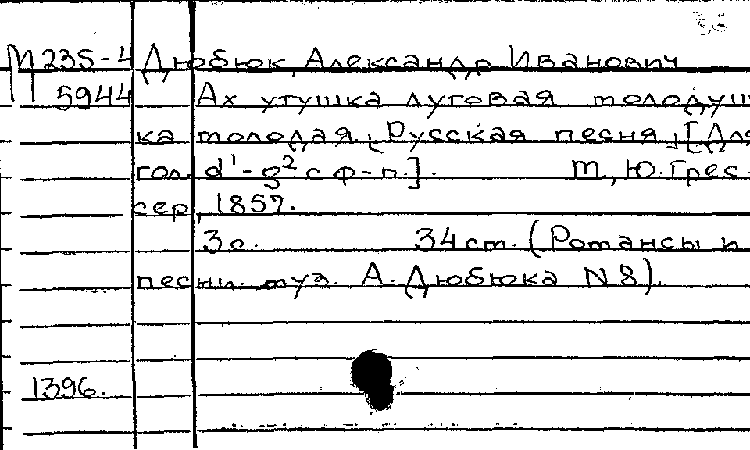 М 235-4 Дюбюк, Александр Иванович
5944 Ах утушка луговая молодуш
ка молодая. [Русская песня] [Для
гол. d¹-g² с ф-п.]. М., Ю. Грес
сер, 1857.
3 с. 34 см. (Романсы и
песни муз. А. Дюбюка N 8).
1396.